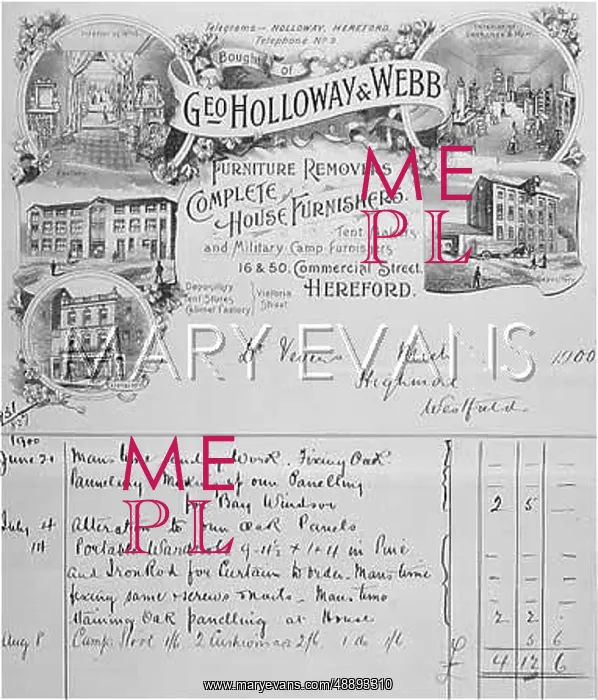 Telegrams – HOLLOWAY, HEREFORD.
Telephone No 9.
Interior of
Bought of
GEO HOLLOWAY & WEBB
FURNITURE REMOVERS
COMPLETE
HOUSE FURNISHERS.
Tent Makers
and Military Camp Furnishers
16 & 50, Commercial Street,
HEREFORD.
Depository
Tent Stores
Cabinet Factory
Victoria Street
Factory
Depository
ME
PL
MARY EVANS
Dr
1900
Westfield
1900
June 20 Mans time and Work. Fixing Oak
Pannelling Making up own Panelling
for Bay Window
2 5 -
ME
PL
July 4 Alteration to own Oak Panels
Portable 9-11½ x 1-4 in Pine
and Iron Rod for Curtain to order - Mans time
fixing same screws & nails - Mans time
Staining Oak panelling at House
2 2 -
Aug 8 Camp Stool 1/6 2 Cushions 2/6 1 do 1/6
5 6
£ 4 12 6
www.maryevans.com/48893310